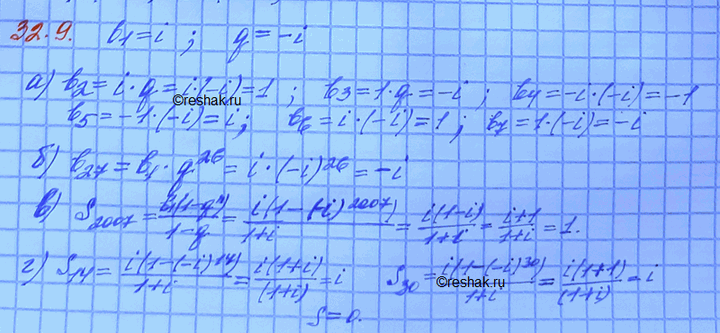 32.9. b₁=i ; q=-i
а) b₂=i·q=i·(-i)=1 ; b₃=1·q=-i ; b₄=-i·(-i)=-1
©reshak.ru
b₅=-1·(-i)=i; b₆=i·(-i)=1; b₇=1·(-i)=-i
б) b₂₇=b₁·q²⁶=i·(-i)²⁶=-i
в) S₂₀₀₇=b₁(1-qⁿ)/1-q=i(1-(-i)²⁰⁰⁷)/1+i=i(1-i)/1+i=i+1/1+i=1.
г) S₁₄=i(1-(-i)¹⁴)/1+i=i(1+i)/(1+i)=i S₃₀=i(1-(-i)³⁰)/1+i=i(1+1)/(1+i)=i
©reshak.ru
S=0.